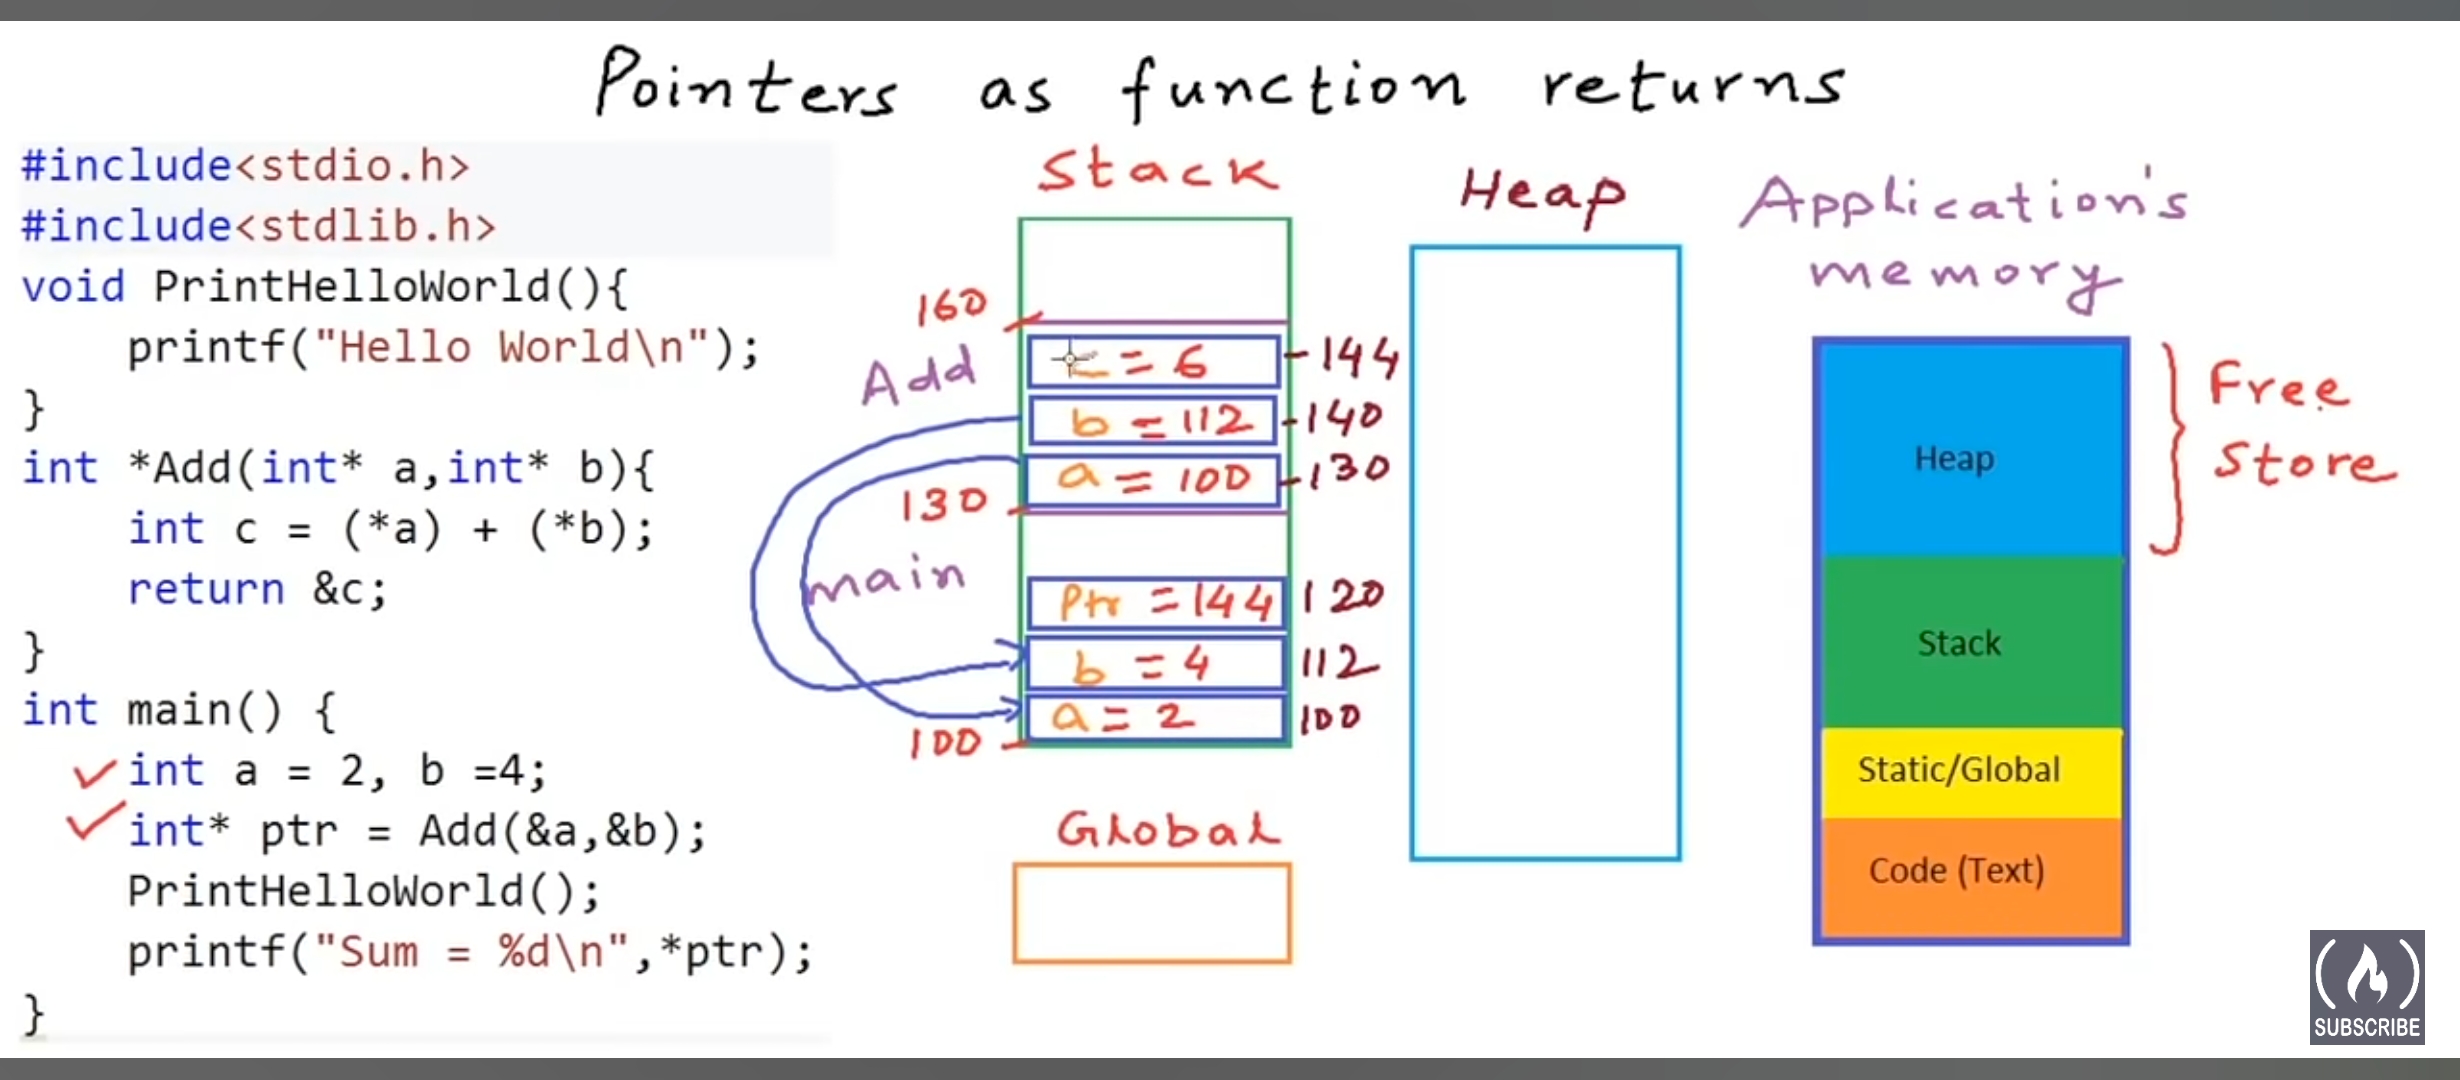 Pointers as function returns
#include<stdio.h>
#include<stdlib.h>
void PrintHelloWorld(){
    printf("Hello World\n");
}
int *Add(int* a,int* b){
    int c = (*a) + (*b);
    return &c;
}
int main() {
    int a = 2, b =4;
    int* ptr = Add(&a,&b);
    PrintHelloWorld();
    printf("Sum = %d\n",*ptr);
}
Stack
160
Add
c = 6 -144
b = 112 -140
a = 100 -130
130
main
Ptr = 144 120
b = 4 112
a = 2 100
100
Global
Heap
Application's
memory
Heap
Stack
Static/Global
Code (Text)
Free
Store
SUBSCRIBE